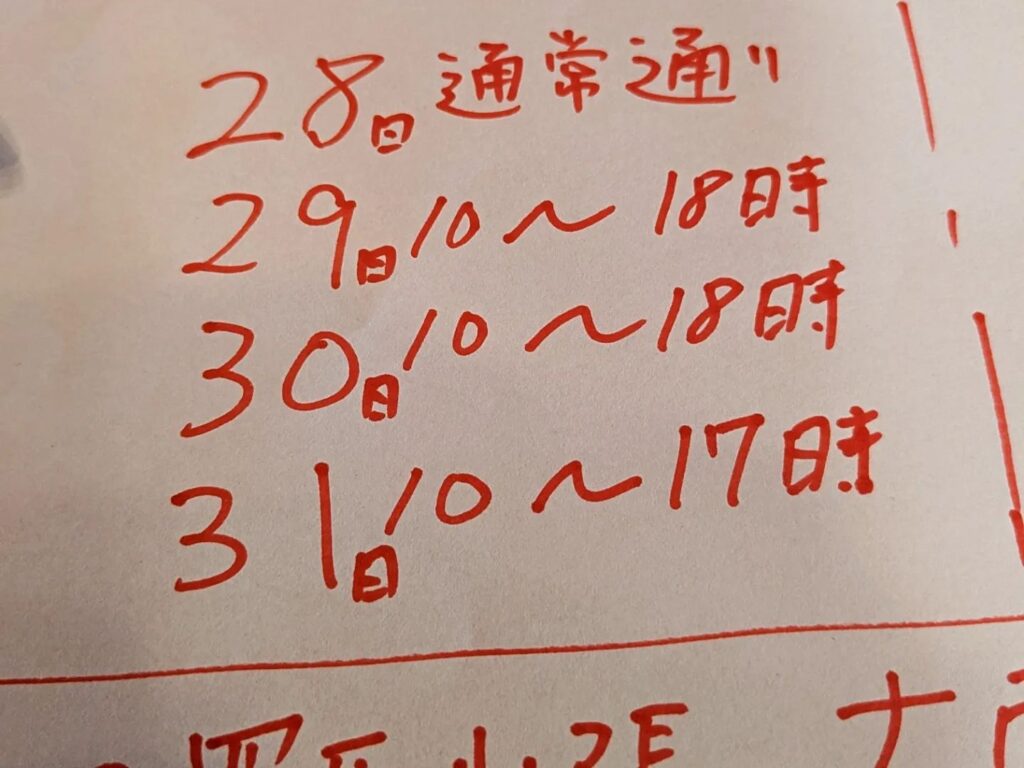 28日 通常通り
29日 10～18時
30日 10～18時
31日 10～17時